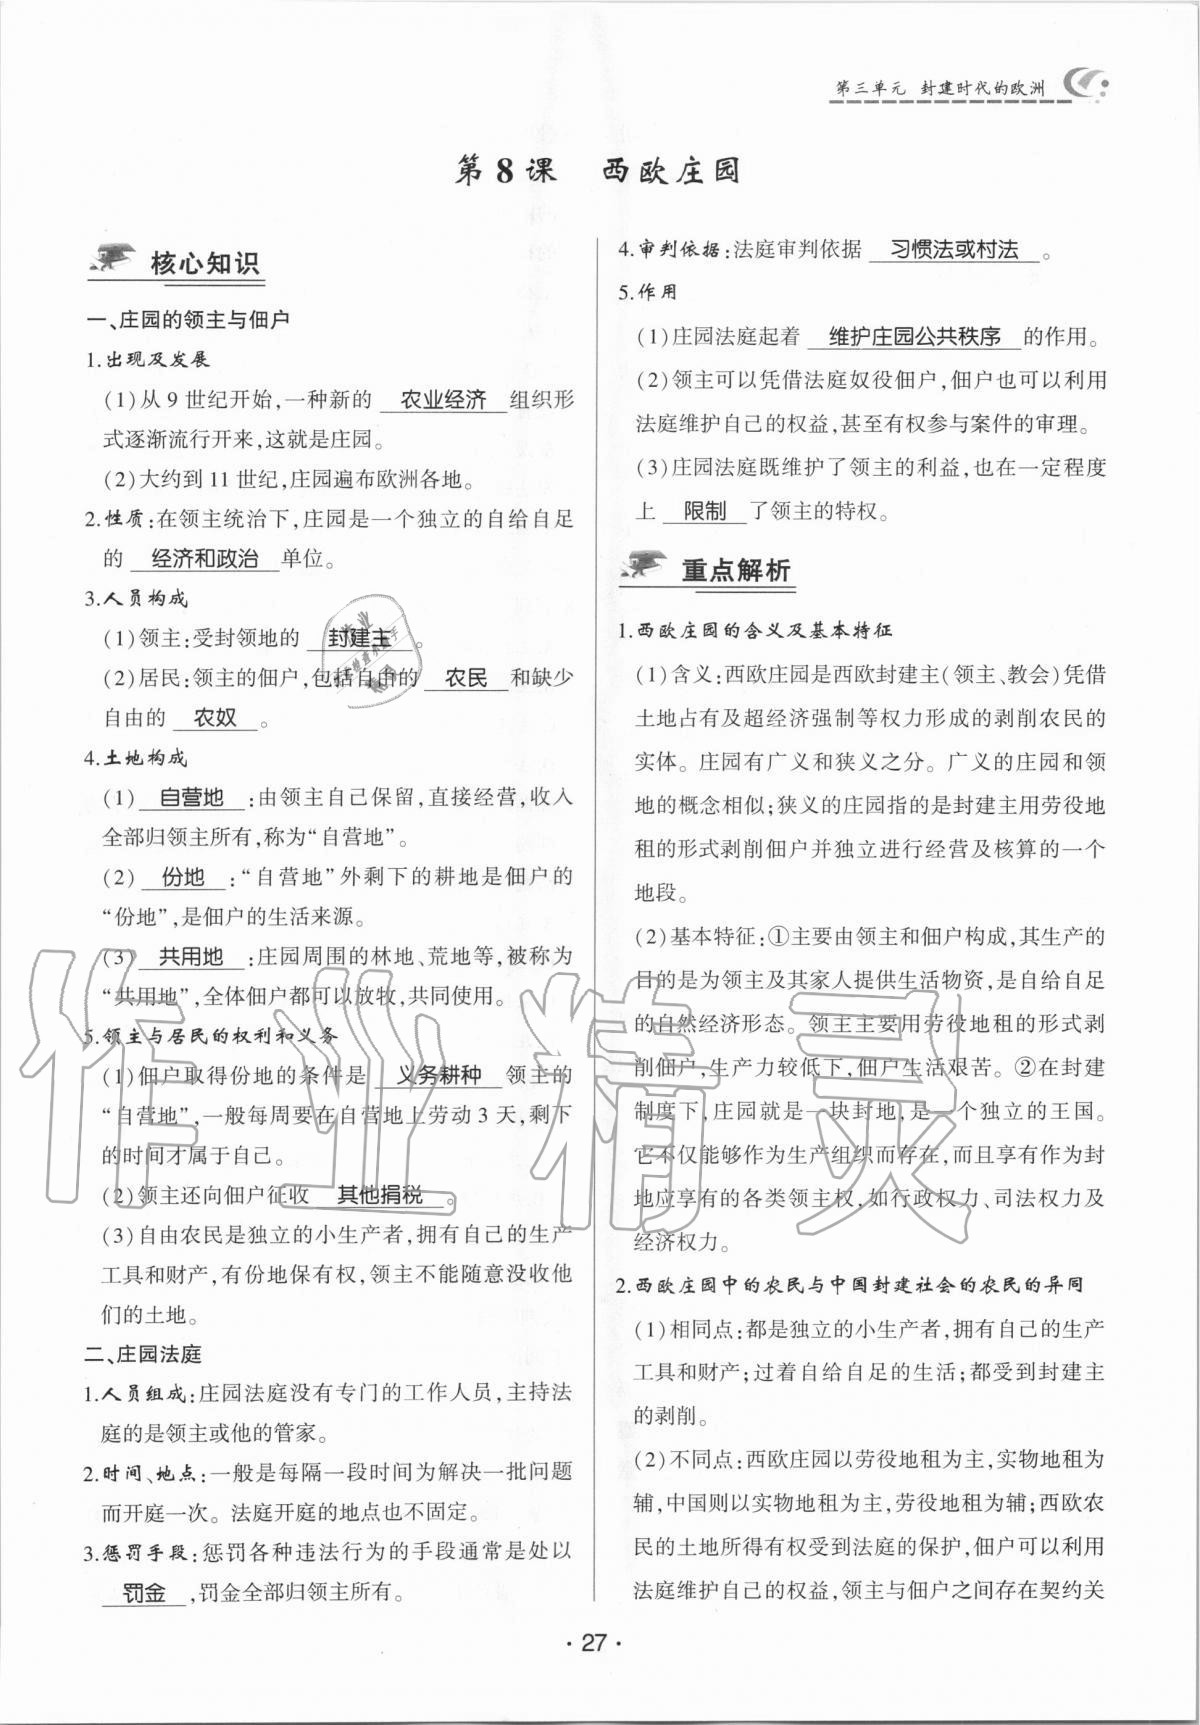 第三单元 封建时代的欧洲
第8课 西欧庄园
核心知识
一、庄园的领主与佃户
1.出现及发展
(1)从9世纪开始,一种新的 农业经济 组织形
式逐渐流行开来,这就是庄园。
(2)大约到11世纪,庄园遍布欧洲各地。
2.性质:在领主统治下,庄园是一个独立的自给自足
的 经济和政治 单位。
3.人员构成
(1)领主:受封领地的 封建主 。
(2)居民:领主的佃户,包括自由的 农民 和缺少
自由的 农奴 。
4.土地构成
(1) 自营地 :由领主自己保留,直接经营,收入
全部归领主所有,称为“自营地”。
(2) 份地 :“自营地”外剩下的耕地是佃户的
“份地”,是佃户的生活来源。
(3) 共用地 :庄园周围的林地、荒地等,被称为
“共用地”,全体佃户都可以放牧,共同使用。
5.领主与居民的权利和义务
(1)佃户取得份地的条件是 义务耕种 领主的
“自营地”,一般每周要在自营地上劳动3天,剩下
的时间才属于自己。
(2)领主还向佃户征收 其他捐税 。
(3)自由农民是独立的小生产者,拥有自己的生产
工具和财产,有份地保有权,领主不能随意没收他
们的土地。
二、庄园法庭
1.人员组成:庄园法庭没有专门的工作人员,主持法
庭的是领主或他的管家。
2.时间、地点:一般是每隔一段时间为解决一批问题
而开庭一次。法庭开庭的地点也不固定。
3.惩罚手段:惩罚各种违法行为的手段通常是处以
罚金 ,罚金全部归领主所有。
4.审判依据:法庭审判依据 习惯法或村法 。
5.作用
(1)庄园法庭起着 维护庄园公共秩序 的作用。
(2)领主可以凭借法庭奴役佃户,佃户也可以利用
法庭维护自己的权益,甚至有权参与案件的审理。
(3)庄园法庭既维护了领主的利益,也在一定程度
上 限制 了领主的特权。
重点解析
1.西欧庄园的含义及基本特征
(1)含义:西欧庄园是西欧封建主(领主、教会)凭借
土地占有及超经济强制等权力形成的剥削农民的
实体。庄园有广义和狭义之分。广义的庄园和领
地的概念相似;狭义的庄园指的是封建主用劳役地
租的形式剥削佃户并独立进行经营及核算的一个
地段。
(2)基本特征:①主要由领主和佃户构成,其生产的
目的是为领主及其家人提供生活物资,是自给自足
的自然经济形态。领主主要用劳役地租的形式剥
削佃户,生产力较低下,佃户生活艰苦。②在封建
制度下,庄园就是一块封地,是一个独立的王国。
它不仅能够作为生产组织而存在,而且享有作为封
地应享有的各类领主权,如行政权力、司法权力及
经济权力。
2.西欧庄园中的农民与中国封建社会的农民的异同
(1)相同点:都是独立的小生产者,拥有自己的生产
工具和财产;过着自给自足的生活;都受到封建主
的剥削。
(2)不同点:西欧庄园以劳役地租为主,实物地租为
辅,中国则以实物地租为主,劳役地租为辅;西欧农
民的土地所得有权受到法庭的保护,佃户可以利用
法庭维护自己的权益,领主与佃户之间存在契约关
·27·
作业精灵